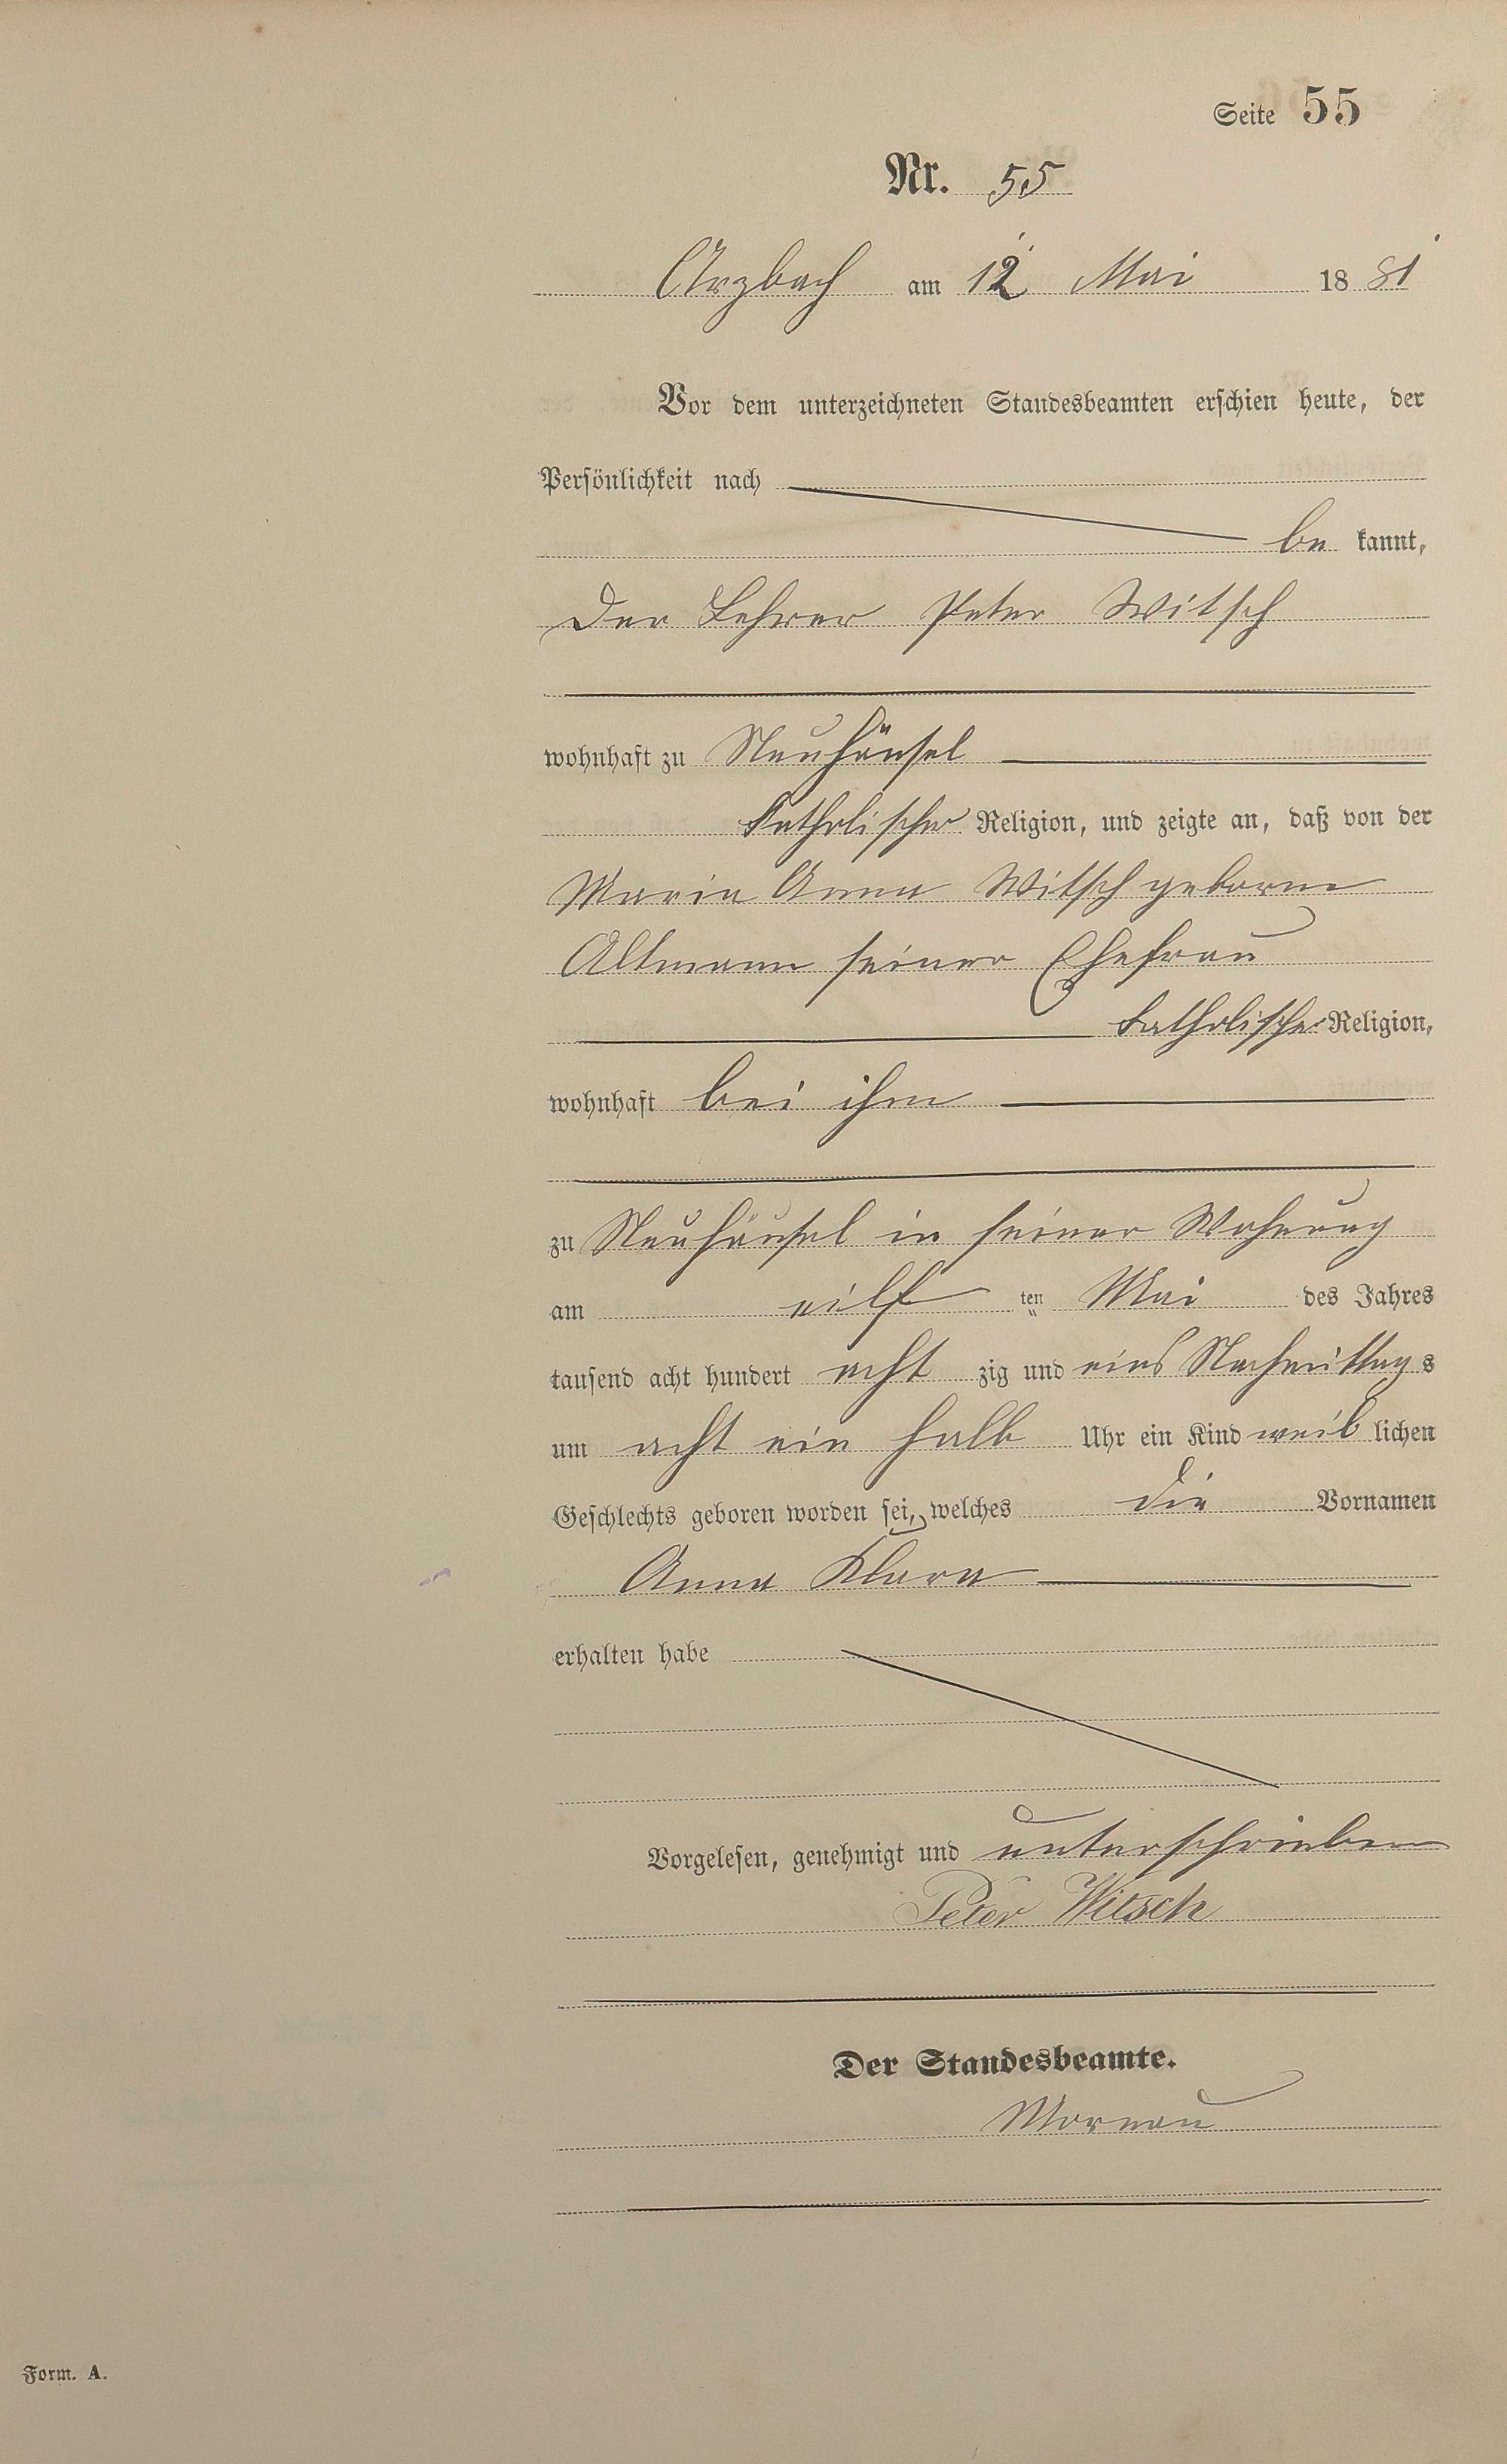 Seite 55
Nr. 55
Arzbach am 12 Mai 1881
Vor dem unterzeichneten Standesbeamten erschien heute, der
Persönlichkeit nach
be kannt,
Der Lehrer Peter Witsch
wohnhaft zu Neuhäusel
katholischer Religion, und zeigte an, daß von der
Maria Anna Witsch geborne
Altmann seiner Ehefrau
katholischer Religion,
wohnhaft bei ihm
zu Neuhäusel in seiner Wohnung
am eilf ten Mai des Jahres
tausend acht hundert acht zig und eins Nachmittags
um acht ein halb Uhr ein Kind weiblichen
Geschlechts geboren worden sei, welches die Vornamen
Anna Klara
erhalten habe
Vorgelesen, genehmigt und unterschrieben
Peter Witsch
Der Standesbeamte.
Form. A.